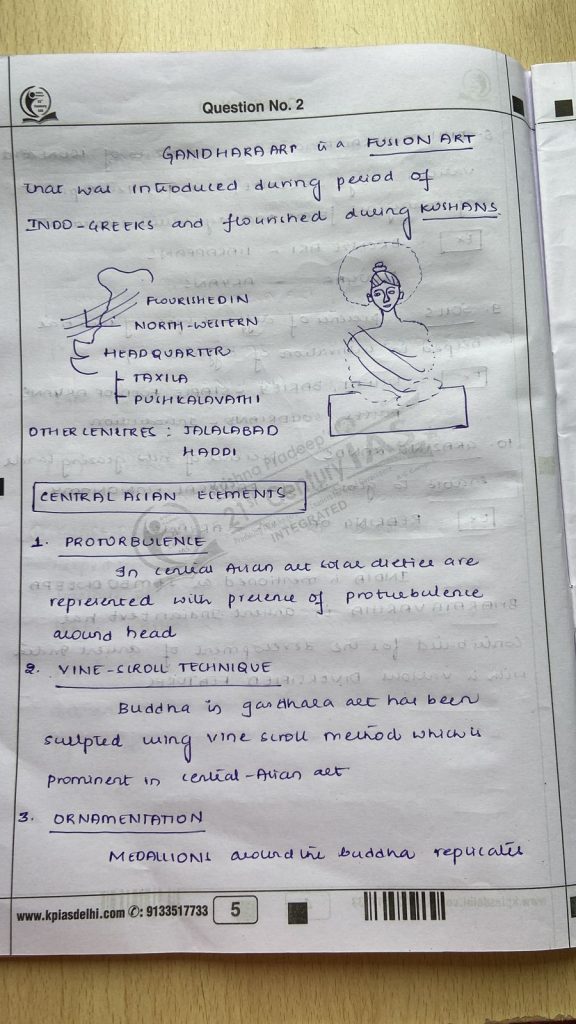 Question No. 2
GANDHARA ART is a FUSION ART
that was introduced during period of
INDO-GREEKS and flourished during KUSHANS.
FLOURISHED IN
NORTH-WESTERN
HEADQUARTER
TAXILA
PUSHKALAVATHI
OTHER CENTRES : JALALABAD
HADDI
Krishna Pradeep's
21st Century IAS
INTEGRATED
CENTRAL ASIAN ELEMENTS
1. PROTURBULENCE
In central Asian art solar dieties are
represented with presence of proturbulence
around head
2. VINE-SCROLL TECHNIQUE
Buddha in gandhara art has been
sculpted using vine scroll method which is
prominent in central-Asian art
3. ORNAMENTATION
MEDALLIONS around the buddha replicates
www.kpiasdelhi.com ✆: 9133517733
5